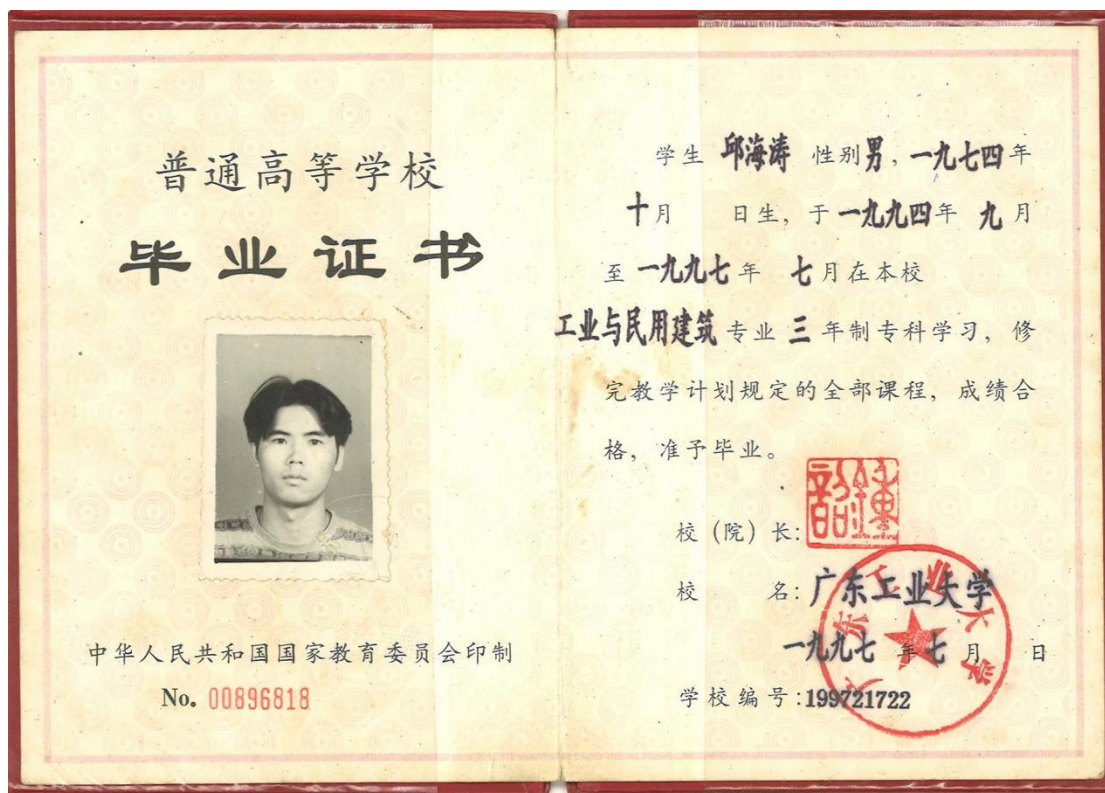 普通高等学校
毕业证书
中华人民共和国国家教育委员会印制
No. 00896818
学生 邱海涛 性别男,一九七四年
十月 日生,于一九九四年 九月
至一九九七年 七月在本校
工业与民用建筑专业 三 年制专科学习,修
完教学计划规定的全部课程,成绩合
格,准予毕业。
校(院)长:
校 名:广东工业大学
一九九七 年七月 日
学校编号:199721722
广东工业大学